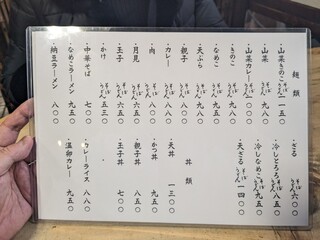 麺類
・山菜きのこ そば うどん 一一五〇
・山菜 そば うどん 九八〇
・山菜カレー そば うどん
・きのこ そば うどん 九八〇
・なめこ そば うどん 九五〇
・天ぷら そば うどん 九八〇
・親子 そば うどん 八〇〇
・カレー そば うどん 八八〇
・肉 そば うどん 八〇〇
・月見 そば うどん 六五〇
・玉子 そば うどん 六五〇
・かけ そば うどん 六〇〇
・中華そば 七〇〇
・なめこラーメン 九五〇
・納豆ラーメン 八〇〇
・ざる そば うどん 六〇〇
・冷しとろろ そば うどん 八五〇
・冷しなめこ そば うどん 九五〇
・天ざる そば うどん 一四〇〇
丼類
・天丼 一三〇〇
・かつ丼 九五〇
・親子丼 八五〇
・玉子丼 七〇〇
・カレーライス 八八〇
・温卵カレー 九五〇